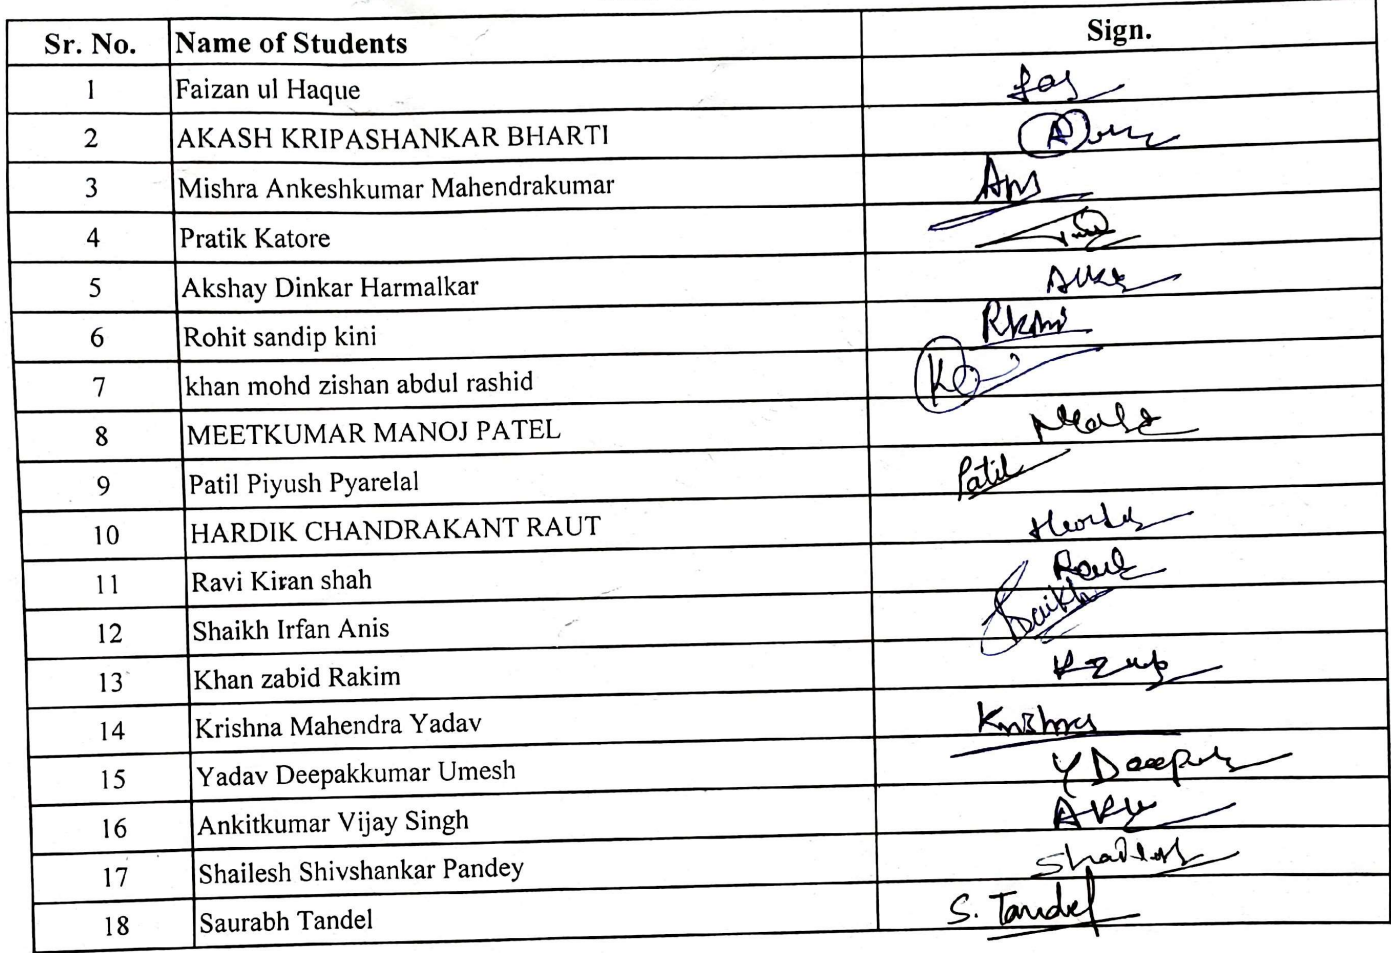 Sr. No. Name of Students Sign.
1 Faizan ul Haque
2 AKASH KRIPASHANKAR BHARTI
3 Mishra Ankeshkumar Mahendrakumar
4 Pratik Katore
5 Akshay Dinkar Harmalkar
6 Rohit sandip kini Rkini
7 khan mohd zishan abdul rashid
8 MEETKUMAR MANOJ PATEL
9 Patil Piyush Pyarelal Patil
10 HARDIK CHANDRAKANT RAUT
11 Ravi Kiran shah
12 Shaikh Irfan Anis
13 Khan zabid Rakim
14 Krishna Mahendra Yadav Krishna
15 Yadav Deepakkumar Umesh Y Deepak
16 Ankitkumar Vijay Singh
17 Shailesh Shivshankar Pandey Shailesh
18 Saurabh Tandel S. Tandel